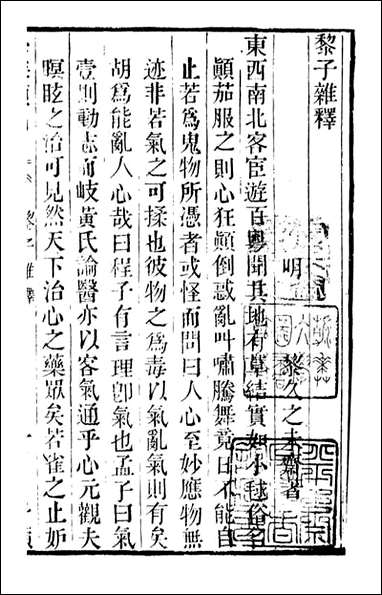 黎子雜釋
明 黎久之未齋著
東西南北客宦遊百粵聞其地有草結實如小毬俗名
顛茄服之則心狂顛倒惑亂叫嘯騰舞竟日不能自
止若為鬼物所憑者或怪而問曰人心至妙應物無
迹非若氣之可揉也彼物之為毒以氣亂氣則有矣
胡為能亂人心哉曰程子有言理卽氣也孟子曰氣
壹則動志而岐黃氏論醫亦以客氣通乎心元觀夫
瞑眩之治可見然天下治心之藥眾矣若雀之止妒
黎子雜釋
一